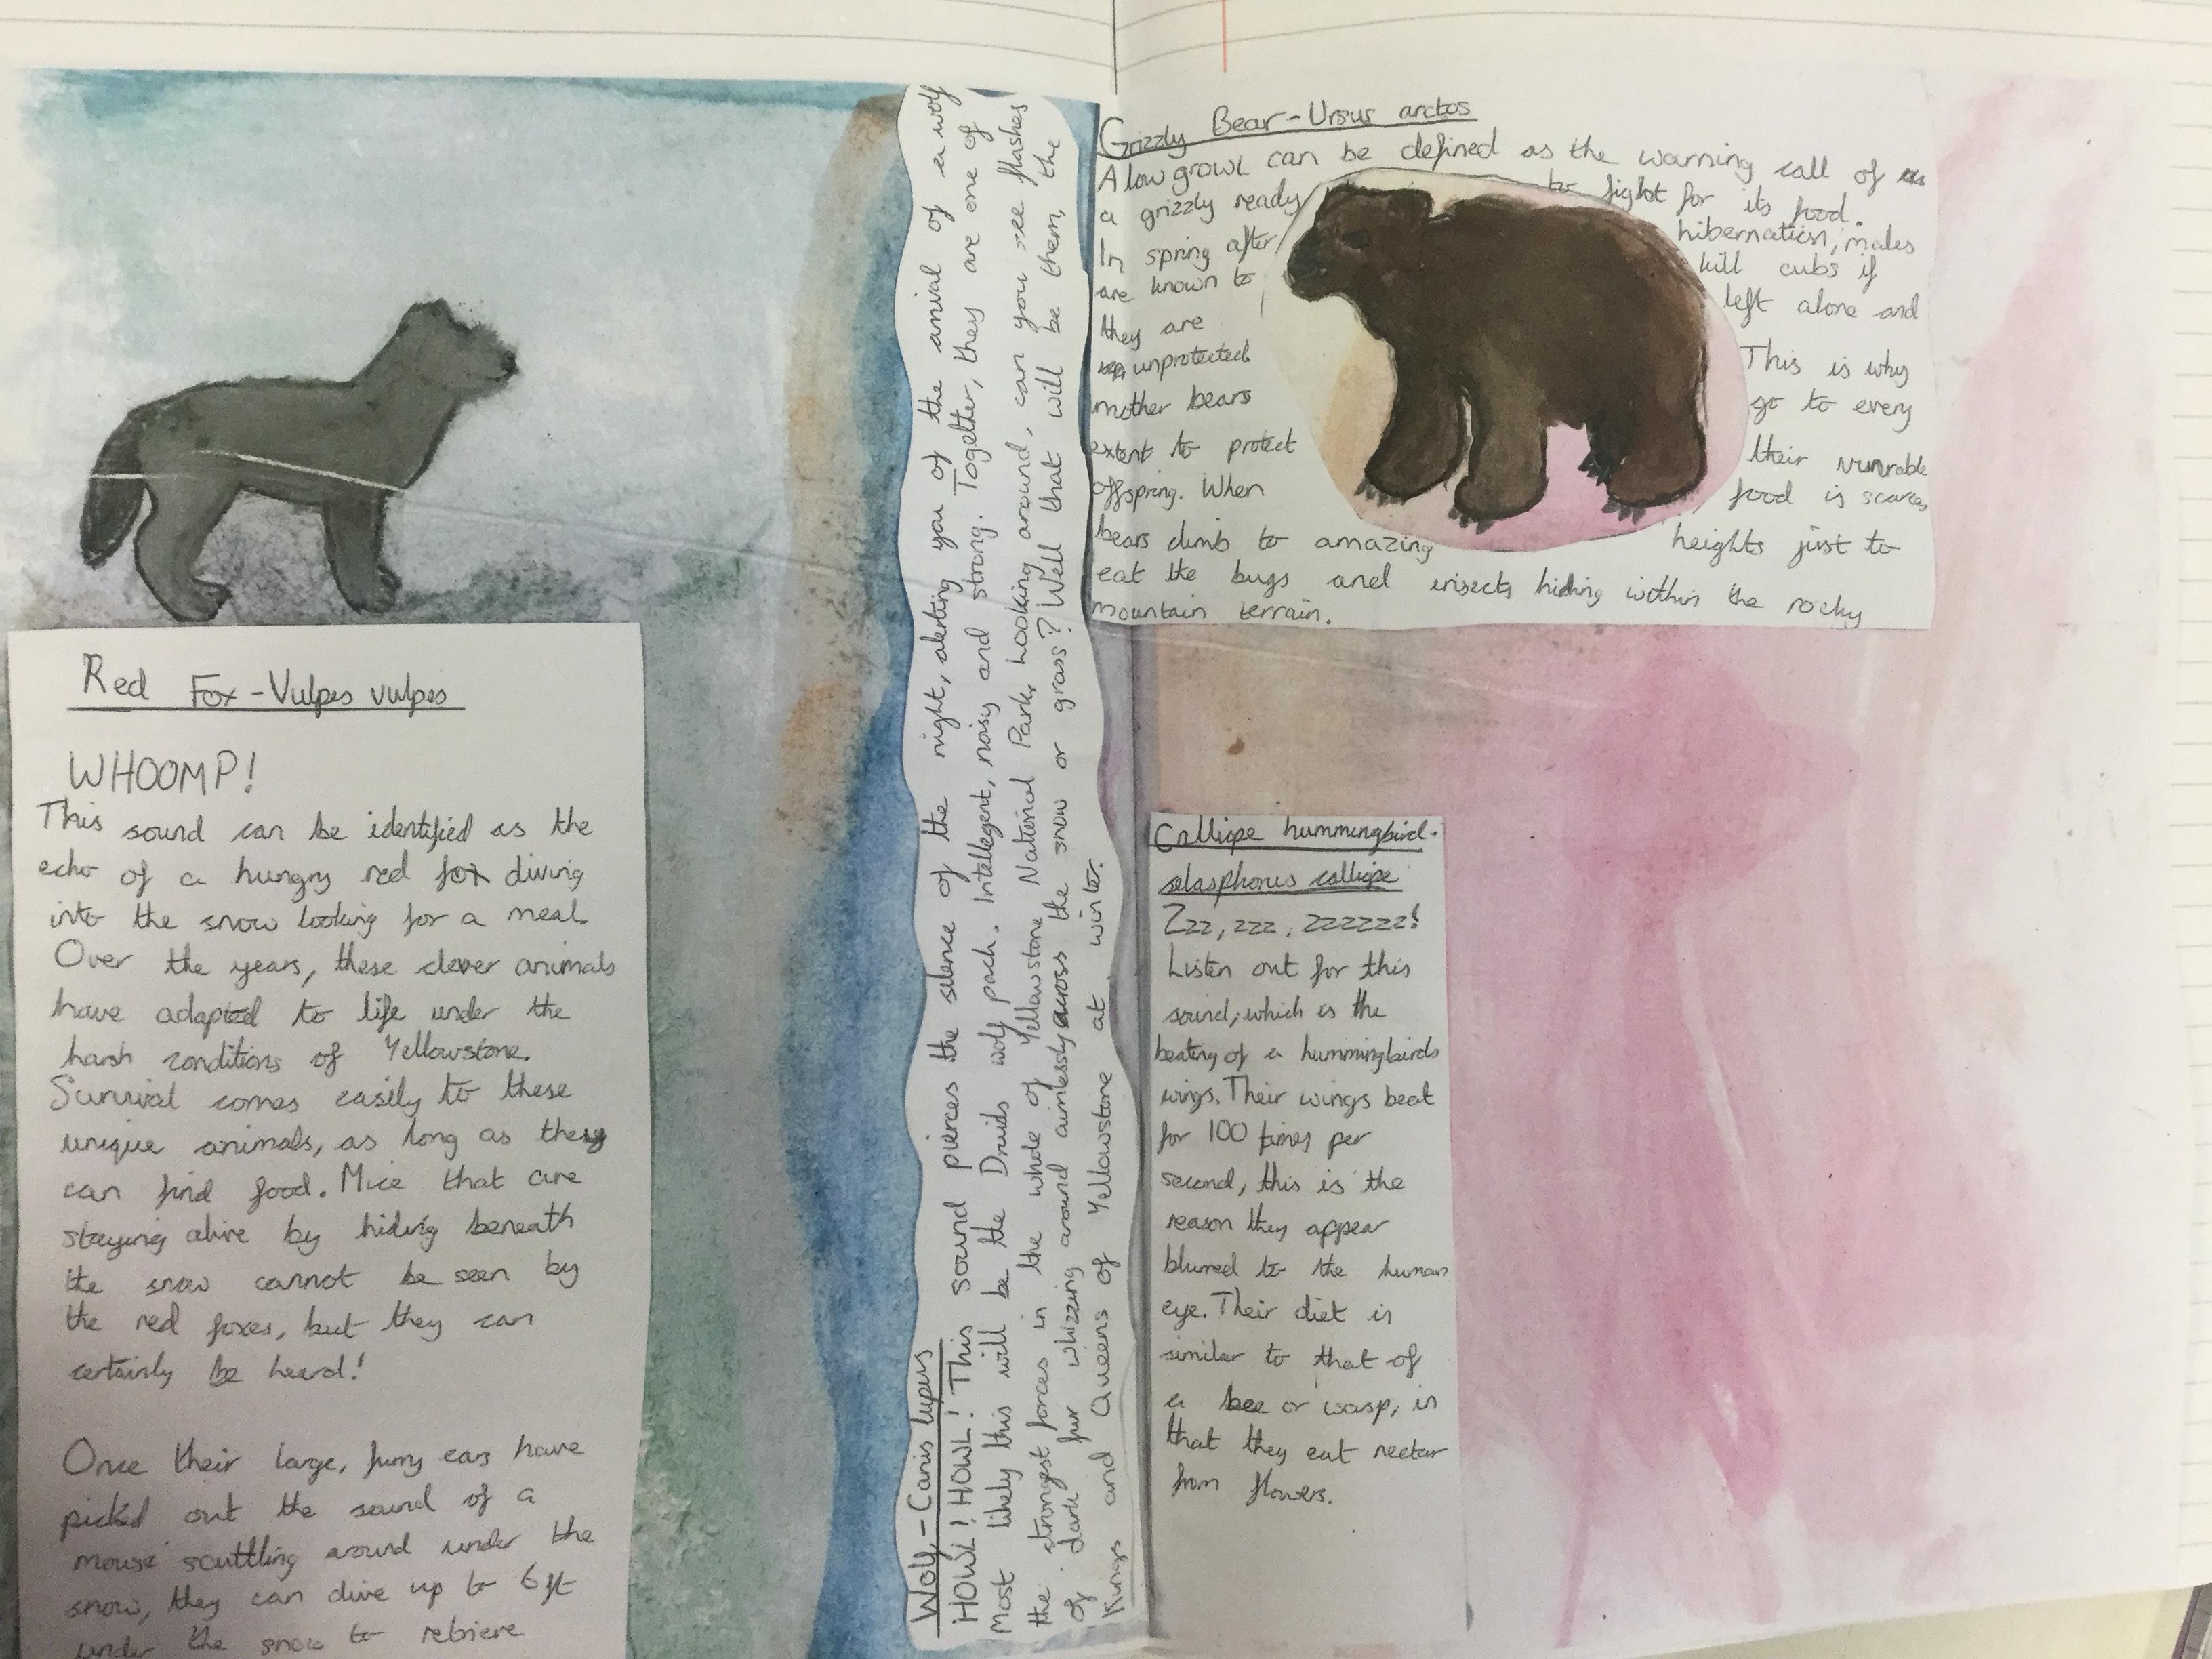 Red Fox - Vulpes vulpes
WHOOMP!
This sound can be identified as the
echo of a hungry red fox diving
into the snow looking for a meal.
Over the years, these clever animals
have adapted to life under the
harsh conditions of Yellowstone.
Survival comes easily to these
unique animals, as long as they
can find food. Mice that are
staying alive by hiding beneath
the snow cannot be seen by
the red foxes, but they can
certainly be heard!
Once their large, furry ears have
picked out the sound of a
mouse scuttling around under the
snow, they can dive up to 6ft
under the snow to retrieve
Wolf - Canis lupus
HOWL! HOWL! This sound pierces the silence of the night, alerting you of the arrival of a wolf
Most likely this will be the Druids wolf pack. Intellegent, noisy and strong. Together, they are one of
the strongest forces in the whole of Yellowstone National Park. Looking around, can you see flashes
of dark fur whizzing around aimlessly across the snow or grass? Well that will be them, the
Kings and Queens of Yellowstone at winter.
Grizzly Bear - Ursus arctos
A low growl can be defined as the warning call of
a grizzly ready to fight for its food.
In spring after hibernation, males
are known to kill cubs if
they are left alone and
unprotected. This is why
mother bears go to every
extent to protect their vunrable
offspring. When food is scarce,
bears climb to amazing heights just to
eat the bugs and insects hiding within the rocky
mountain terrain.
Calliope hummingbird -
selasphorus calliope
Zzz, zzz, zzzzzz!
Listen out for this
sound, which is the
beating of a hummingbirds
wings. Their wings beat
for 100 times per
second, this is the
reason they appear
blurred to the human
eye. Their diet is
similar to that of
a bee or wasp, in
that they eat nectar
from flowers.